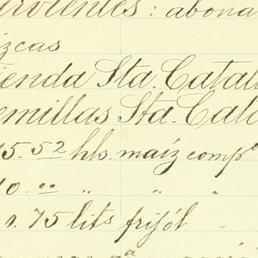 irvientes: abona
izcas
ienda Sta. Catal
emillas Sta. Cata
15.52 hls. maíz comp.
10.00 " " "
1.75 lits frijól "